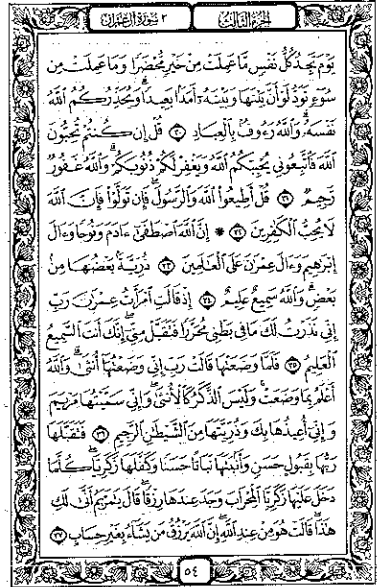 الجزء الثالث
٣ سورة آل عمران
يَوْمَ تَجِدُ كُلُّ نَفْسٍ مَّا عَمِلَتْ مِنْ خَيْرٍ مُّحْضَرًا وَمَا عَمِلَتْ مِن
سُوٓءٍ تَوَدُّ لَوْ أَنَّ بَيْنَهَا وَبَيْنَهُۥٓ أَمَدًۢا بَعِيدًا ۗ وَيُحَذِّرُكُمُ ٱللَّهُ
نَفْسَهُۥ ۗ وَٱللَّهُ رَءُوفٌۢ بِٱلْعِبَادِ ۝٣٠ قُلْ إِن كُنتُمْ تُحِبُّونَ
ٱللَّهَ فَٱتَّبِعُونِى يُحْبِبْكُمُ ٱللَّهُ وَيَغْفِرْ لَكُمْ ذُنُوبَكُمْ ۗ وَٱللَّهُ غَفُورٌ
رَّحِيمٌ ۝٣١ قُلْ أَطِيعُوا۟ ٱللَّهَ وَٱلرَّسُولَ ۖ فَإِن تَوَلَّوْا۟ فَإِنَّ ٱللَّهَ
لَا يُحِبُّ ٱلْكَٰفِرِينَ ۝٣٢ ۞ إِنَّ ٱللَّهَ ٱصْطَفَىٰٓ ءَادَمَ وَنُوحًا وَءَالَ
إِبْرَٰهِيمَ وَءَالَ عِمْرَٰنَ عَلَى ٱلْعَٰلَمِينَ ۝٣٣ ذُرِّيَّةًۢ بَعْضُهَا مِنۢ
بَعْضٍ ۗ وَٱللَّهُ سَمِيعٌ عَلِيمٌ ۝٣٤ إِذْ قَالَتِ ٱمْرَأَتُ عِمْرَٰنَ رَبِّ
إِنِّى نَذَرْتُ لَكَ مَا فِى بَطْنِى مُحَرَّرًا فَتَقَبَّلْ مِنِّىٓ ۖ إِنَّكَ أَنتَ ٱلسَّمِيعُ
ٱلْعَلِيمُ ۝٣٥ فَلَمَّا وَضَعَتْهَا قَالَتْ رَبِّ إِنِّى وَضَعْتُهَآ أُنثَىٰ وَٱللَّهُ
أَعْلَمُ بِمَا وَضَعَتْ وَلَيْسَ ٱلذَّكَرُ كَٱلْأُنثَىٰ ۖ وَإِنِّى سَمَّيْتُهَا مَرْيَمَ
وَإِنِّىٓ أُعِيذُهَا بِكَ وَذُرِّيَّتَهَا مِنَ ٱلشَّيْطَٰنِ ٱلرَّجِيمِ ۝٣٦ فَتَقَبَّلَهَا
رَبُّهَا بِقَبُولٍ حَسَنٍ وَأَنۢبَتَهَا نَبَاتًا حَسَنًا وَكَفَّلَهَا زَكَرِيَّا ۖ كُلَّمَا
دَخَلَ عَلَيْهَا زَكَرِيَّا ٱلْمِحْرَابَ وَجَدَ عِندَهَا رِزْقًا ۖ قَالَ يَٰمَرْيَمُ أَنَّىٰ لَكِ
هَٰذَا ۖ قَالَتْ هُوَ مِنْ عِندِ ٱللَّهِ ۖ إِنَّ ٱللَّهَ يَرْزُقُ مَن يَشَآءُ بِغَيْرِ حِسَابٍ ۝٣٧
٥٤